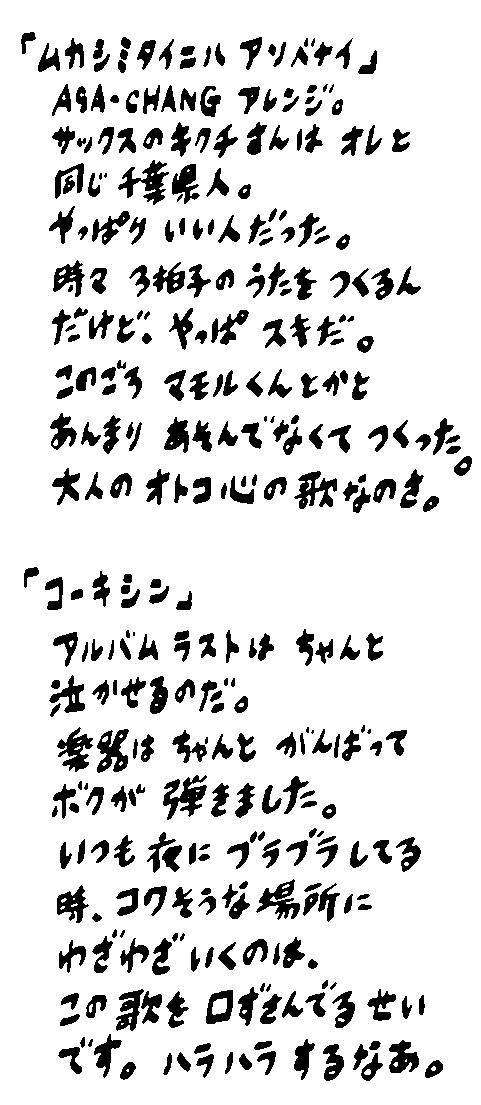 「ムカシミタイニル アソバナイ」
ASA-CHANG アレンジ。
サックスのキクチさんは オレと
同じ 千葉県人。
やっぱり いい人だった。
時々 3拍子の うたを つくるん
だけど、やっぱ スキだ。
このごろ マモルくんとかと
あんまり あそんでなくて つくった。
大人の オトコ心の 歌なのさ。
「コーキシン」
アルバム ラストは ちゃんと
泣かせるのだ。
楽器は ちゃんと がんばって
ボクが 弾きました。
いつも 夜に ブラブラしてる
時、コワそうな 場所に
わざわざ いくのは、
この 歌を 口ずさんでる せい
です。ハラハラ するなあ。